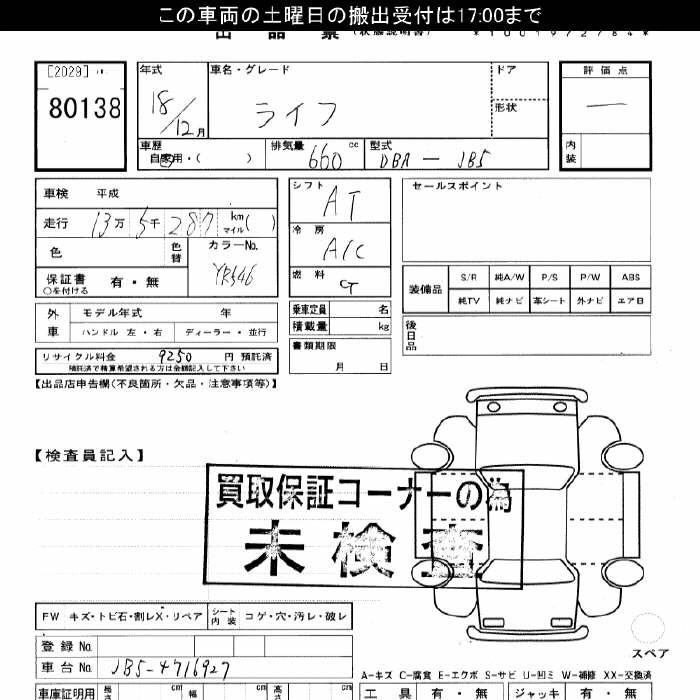 この車両の土曜日の搬出受付は17:00まで
出品票 (状態説明書)
[2029]
80138
年式
18/12月
車名・グレード
ライフ
ドア
形状
評価点
—
内装
車歴
自家用・( )
排気量
660 cc
型式
DBA — JB5
車検 平成
走行 13万 5千 287 km マイル ( )
色 色替 カラーNo.
YR546
保証書 有・無
○を付ける
外車 モデル年式 年
ハンドル 左・右 ディーラー・並行
リサイクル料金 9250 円 預託済
預託済で精算希望される方は金額記入して下さい
シフト
AT
冷房
A/C
燃料
G
乗車定員 名
積載量 kg
書類期限
月 日
セールスポイント
装備品 S/R 純A/W P/S P/W ABS
純TV 純ナビ 革シート 外ナビ エアB
後日品
【出品店申告欄(不良箇所・欠品・注意事項等)】
【検査員記入】
買取保証コーナーの為
未検査
FW キズ・トビ石・割レX・リペア シート内装 コゲ・穴・汚レ・破レ
登録 No.
車台 No. JB5-4716927
スペア
A-キズ C-腐食 E-エクボ S-サビ U-凹ミ W-補修 XX-交換済
車庫証明用 長さ cm 幅 cm 高さ cm
工具 有・無 ジャッキ 有・無